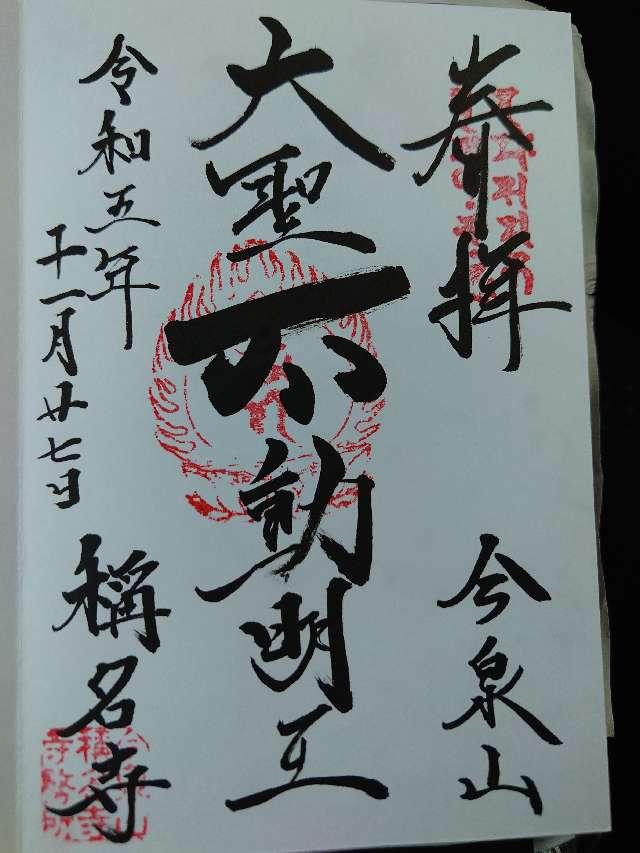 奉拝
今泉山
大聖不動明王
令和五年
十一月廿七日
稱名寺